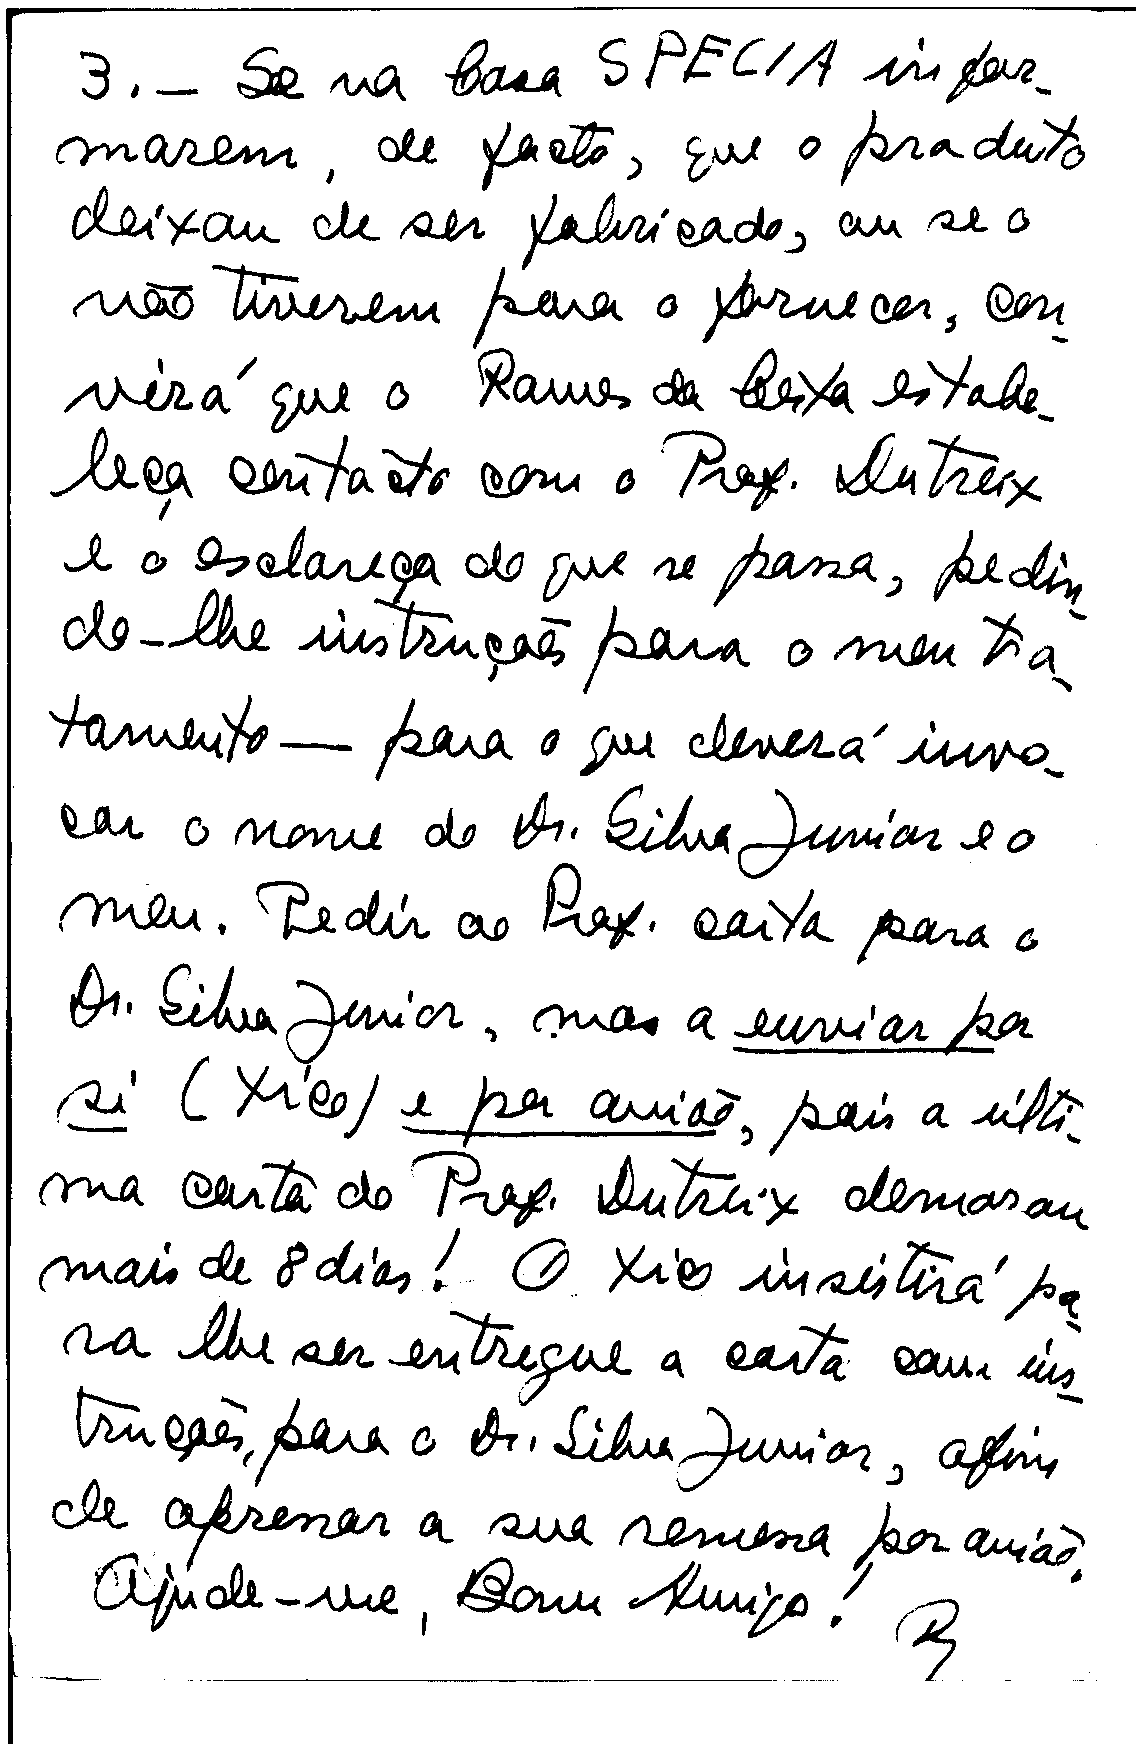 3. — Se na Casa SPECIA infor-
marem, de facto, que o produto
deixou de ser fabricado, ou se o
não tiverem para o fornecer, con-
virá que o Ramos da Costa estabe-
leça contacto com o Prof. Dutreix
e o esclareça do que se passa, pedin-
do-lhe instruções para o meu tra-
tamento — para o que deverá invo-
car o nome do Dr. Silva Junior e o
meu. Pedir ao Prof. carta para o
Dr. Silva Junior, mas a enviar por
si (Xico) e por avião, pois a últi-
ma carta do Prof. Dutreix demorou
mais de 8 dias! O Xico insistirá pa-
ra lhe ser entregue a carta com ins-
truções, para o Dr. Silva Junior, afim
de apressar a sua remessa por avião.
Ajude-me, Bom Amigo!